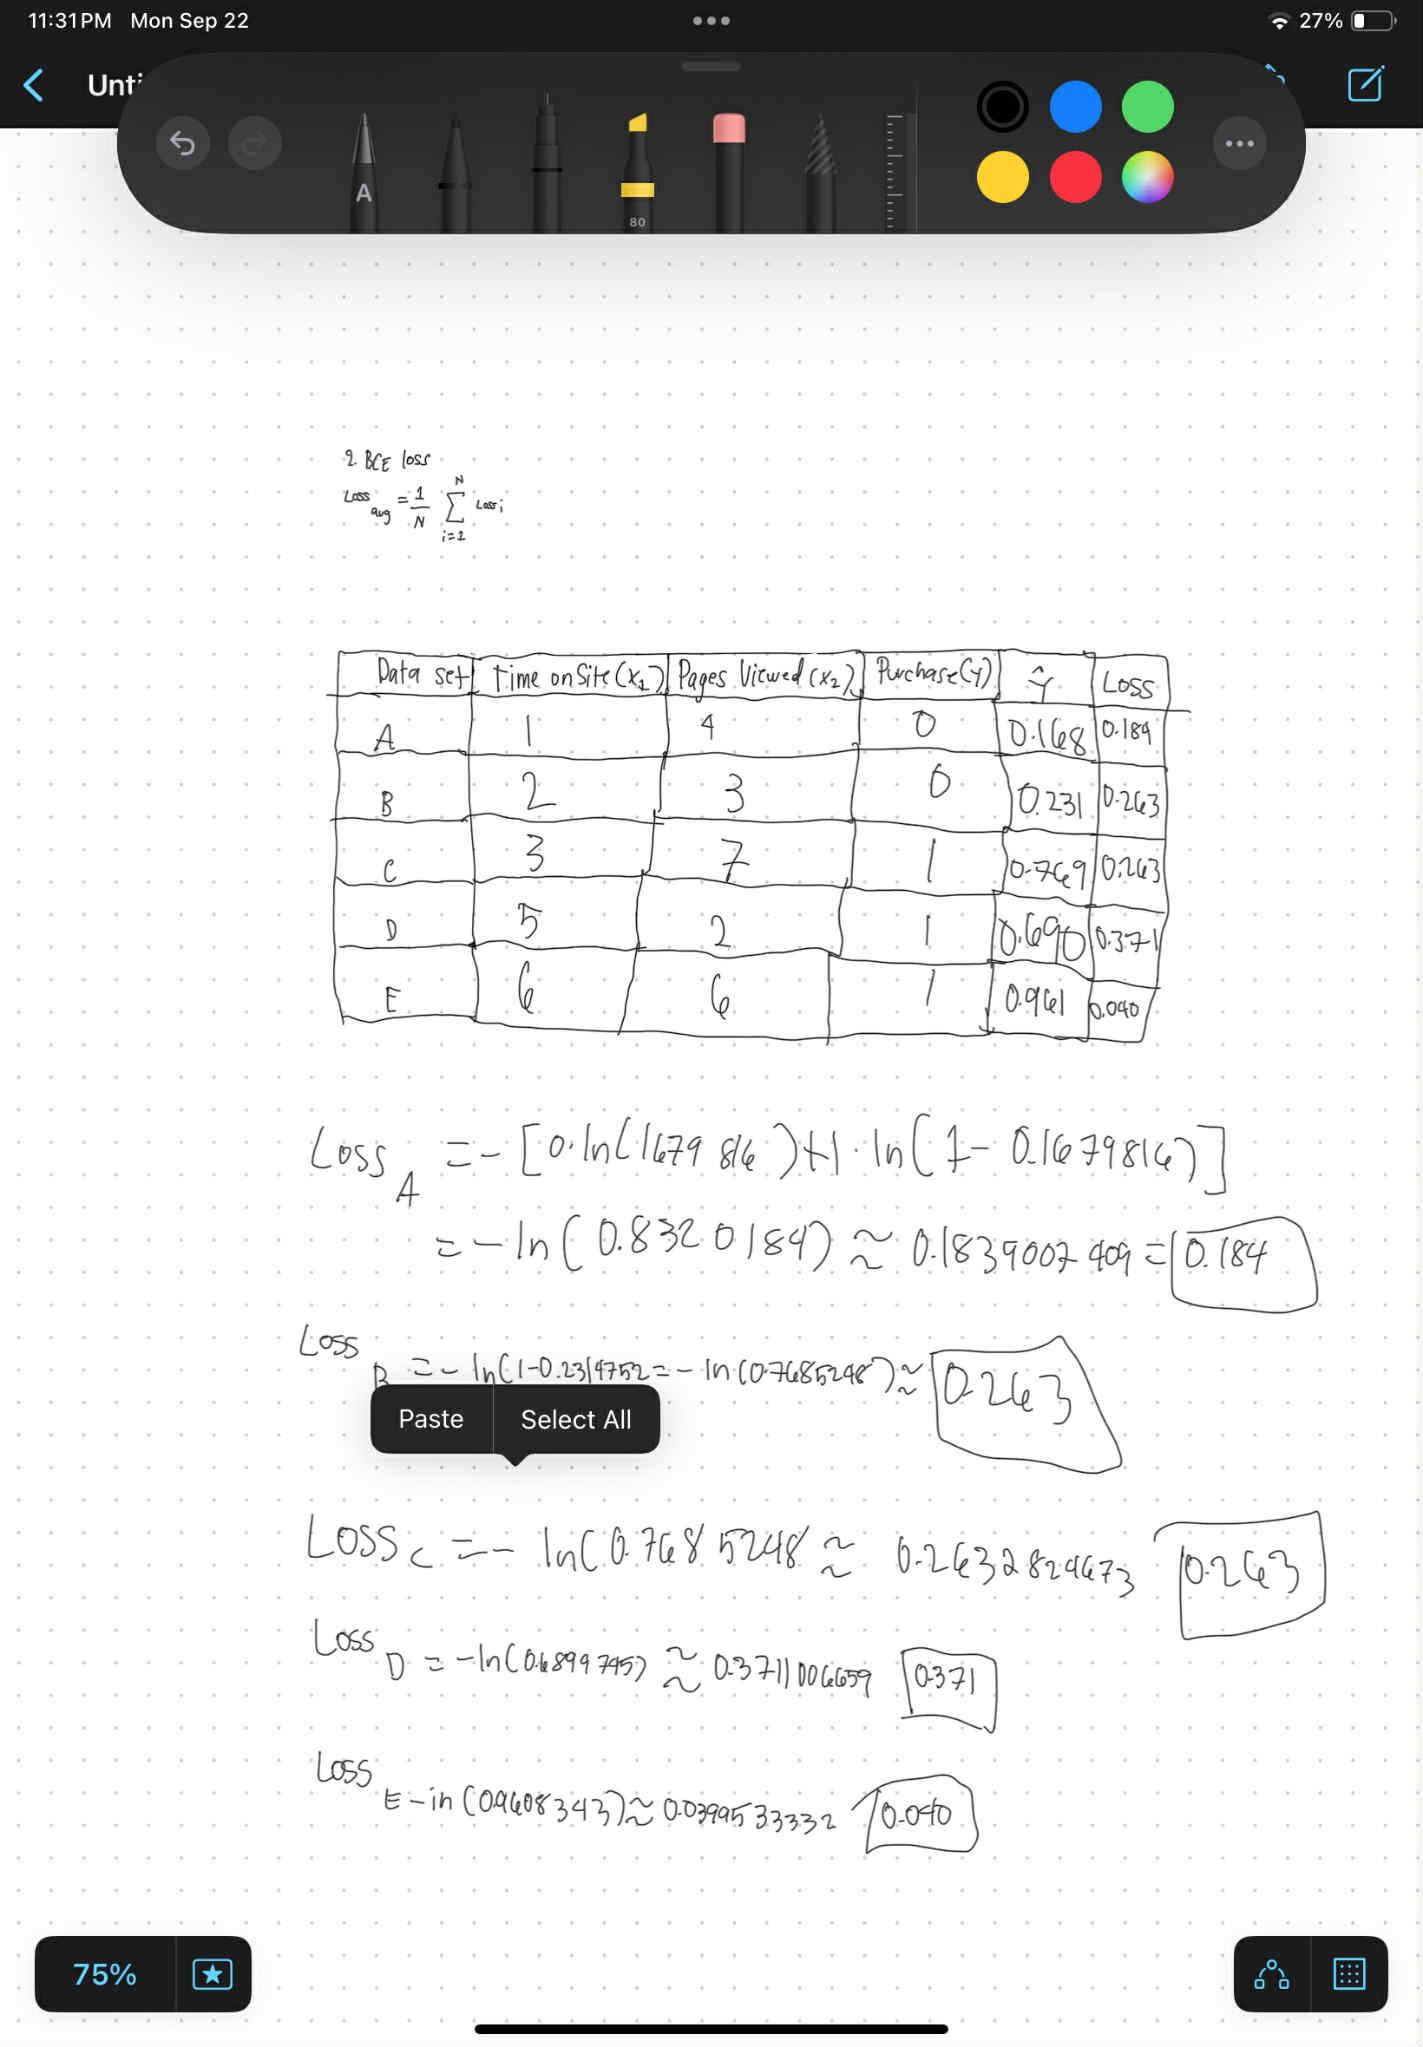 11:31PM Mon Sep 22
27%
Unti
A
80
2. BCE loss
Loss avg = 1/N N Σ i=1 Loss i
Data set Time on Site (x1) Pages Viewed (x2) Purchase (Y) Ŷ Loss
A 1 4 0 0.168 0.184
B 2 3 0 0.231 0.263
C 3 7 1 0.769 0.263
D 5 2 1 0.690 0.371
E 6 6 1 0.961 0.040
Loss A = - [0·ln(1679 816) + 1 · ln(1 - 0.1679816)]
= - ln(0.8320184) ≈ 0.1839007409 = 0.184
Loss B = - ln(1-0.2314752 = - ln(0.7685248) ≈ 0.263
Paste Select All
Loss C = - ln(0.7685248 ≈ 0.2632824673 0.263
Loss D = - ln(0.6899745) ≈ 0.3711006659 0.371
Loss E - in (0.9608343) ≈ 0.0399533332 0.040
75%